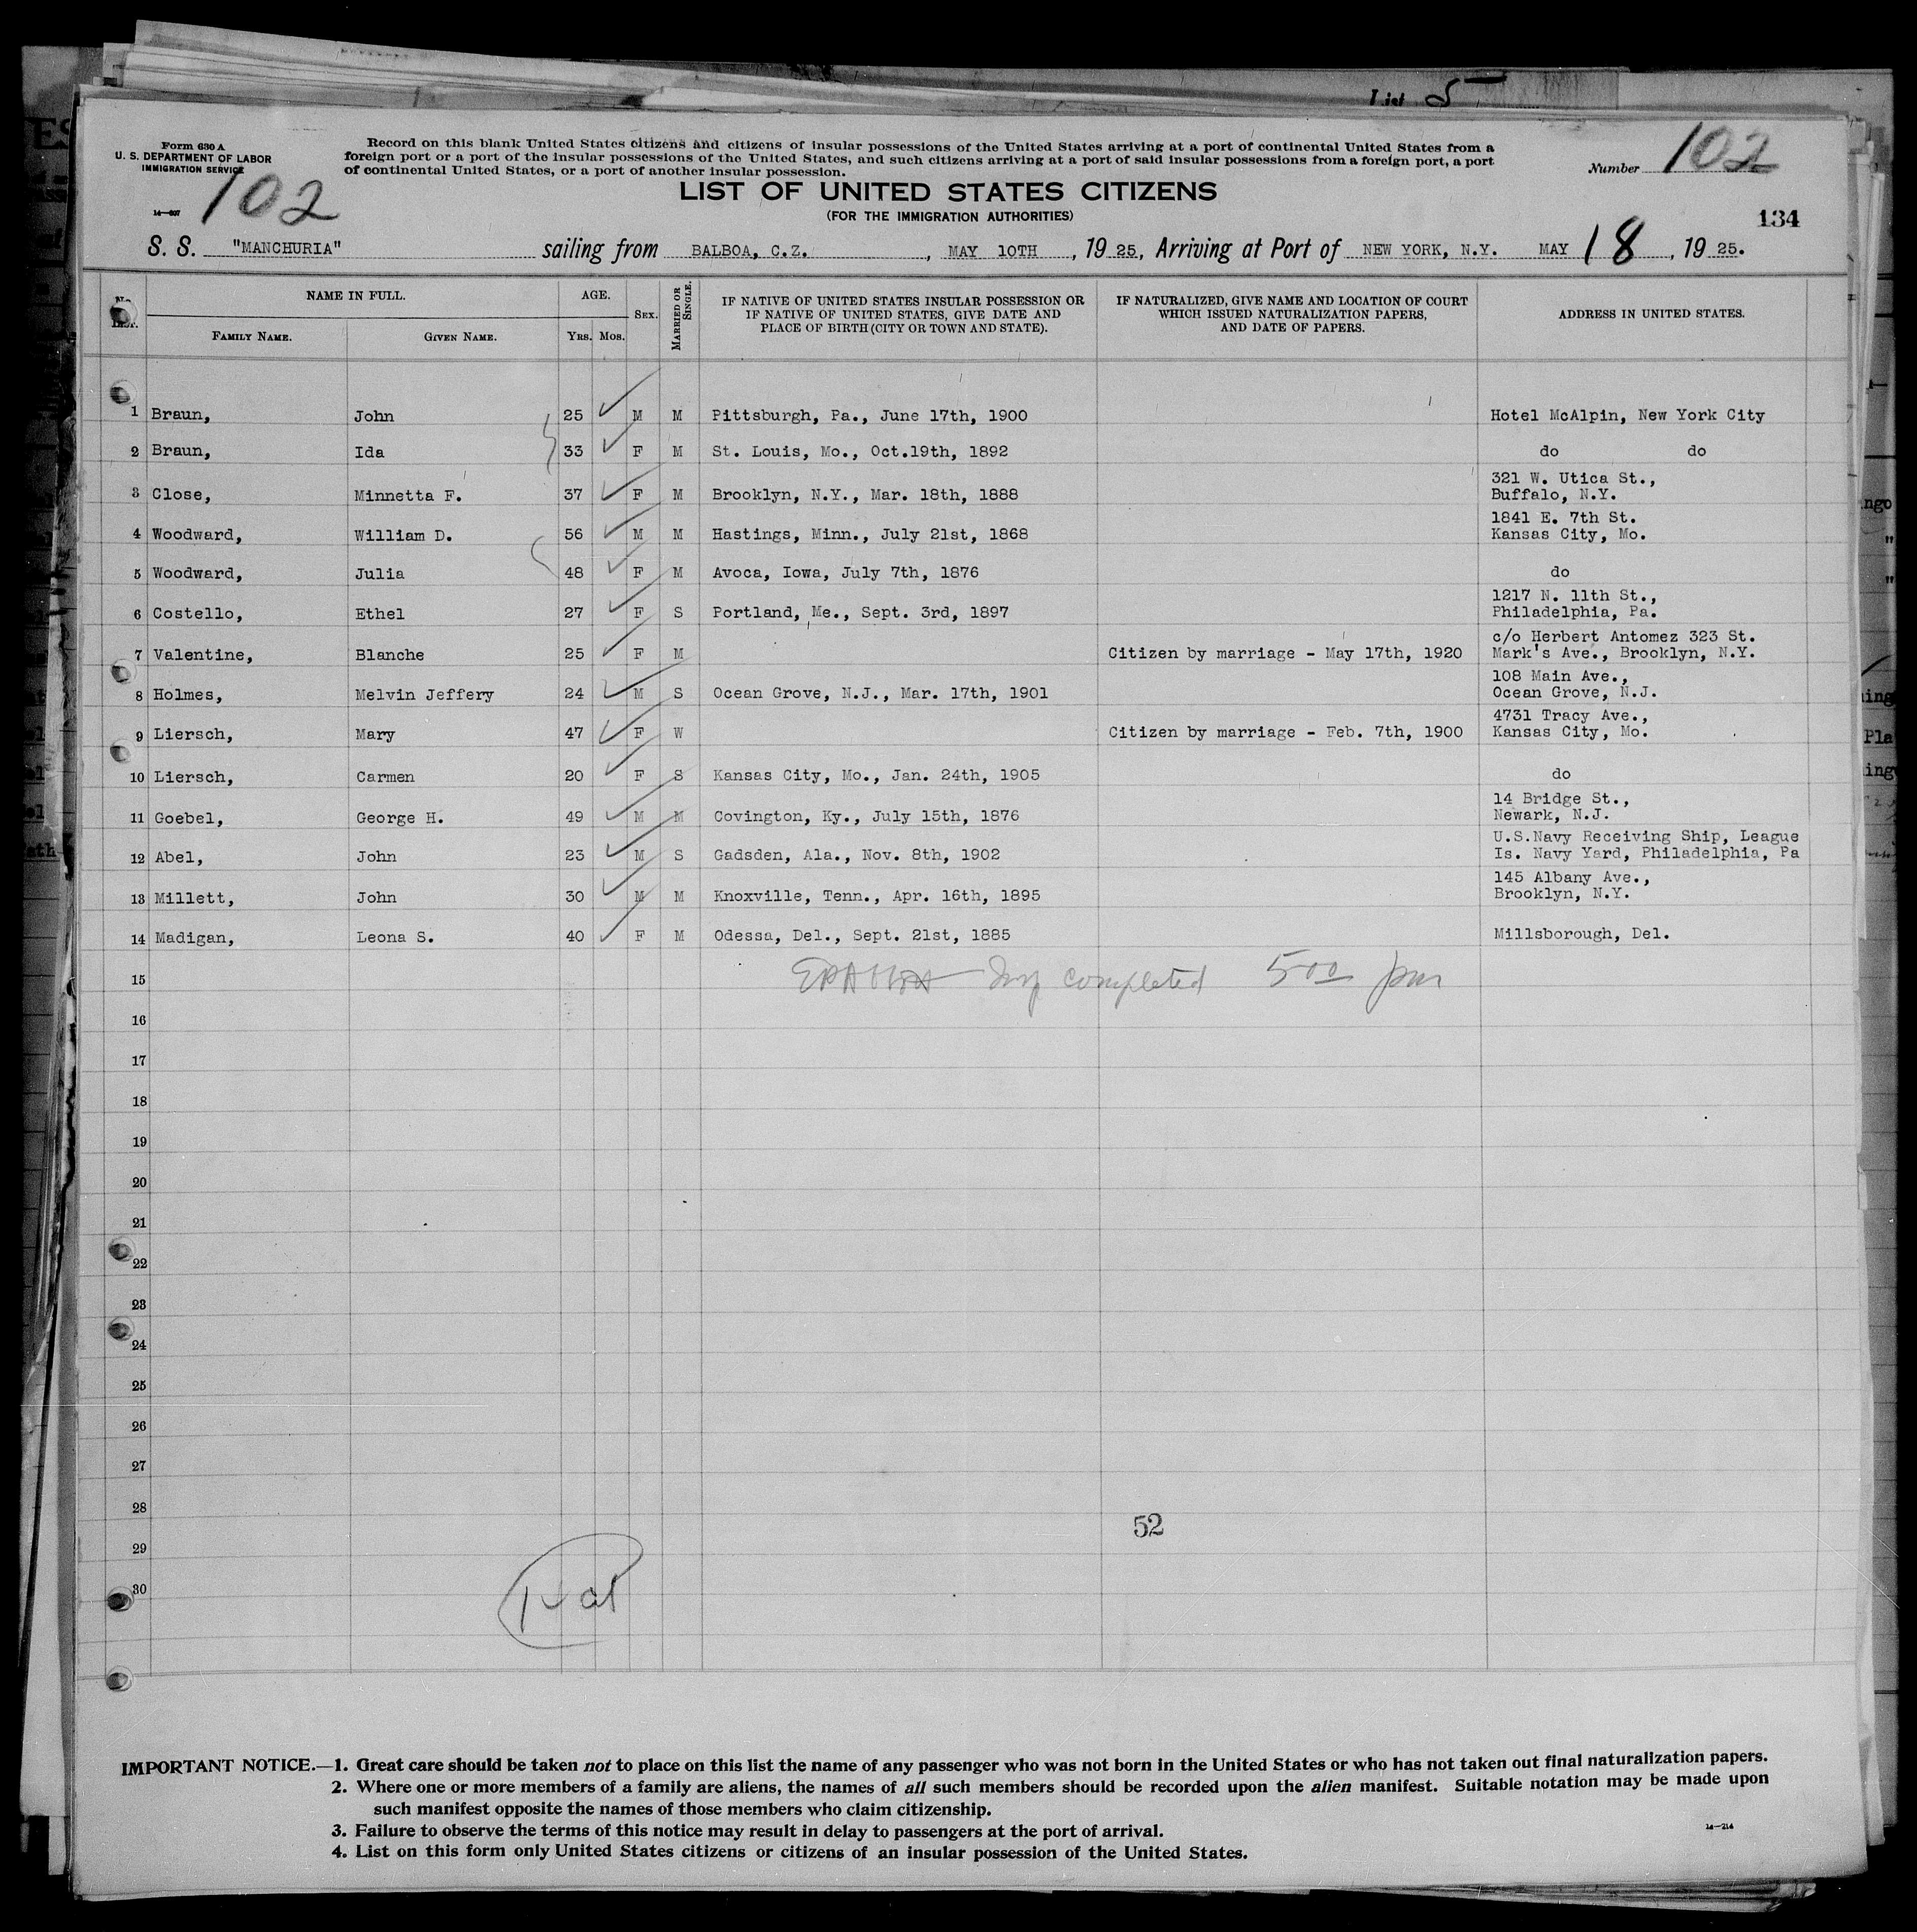 List 5
Form 630 A
U. S. DEPARTMENT OF LABOR
IMMIGRATION SERVICE
14—607
102
Record on this blank United States citizens and citizens of insular possessions of the United States arriving at a port of continental United States from a
foreign port or a port of the insular possessions of the United States, and such citizens arriving at a port of said insular possessions from a foreign port, a port
of continental United States, or a port of another insular possession.
Number 102
LIST OF UNITED STATES CITIZENS
(FOR THE IMMIGRATION AUTHORITIES)
134
S. S. "MANCHURIA" sailing from BALBOA, C.Z. , MAY 10TH , 19 25, Arriving at Port of NEW YORK, N.Y. MAY 18 , 19 25.
NAME IN FULL. AGE. SEX. MARRIED OR SINGLE. IF NATIVE OF UNITED STATES INSULAR POSSESSION OR IF NATIVE OF UNITED STATES, GIVE DATE AND PLACE OF BIRTH (CITY OR TOWN AND STATE). IF NATURALIZED, GIVE NAME AND LOCATION OF COURT WHICH ISSUED NATURALIZATION PAPERS, AND DATE OF PAPERS. ADDRESS IN UNITED STATES.
FAMILY NAME. GIVEN NAME. YRS. MOS.
1 Braun, John 25 M M Pittsburgh, Pa., June 17th, 1900 Hotel McAlpin, New York City
2 Braun, Ida 33 F M St. Louis, Mo., Oct.19th, 1892 do do
321 W. Utica St.,
3 Close, Minnetta F. 37 F M Brooklyn, N.Y., Mar. 18th, 1888 Buffalo, N.Y.
1841 E. 7th St.
4 Woodward, William D. 56 M M Hastings, Minn., July 21st, 1868 Kansas City, Mo.
5 Woodward, Julia 48 F M Avoca, Iowa, July 7th, 1876 do
1217 N. 11th St.,
6 Costello, Ethel 27 F S Portland, Me., Sept. 3rd, 1897 Philadelphia, Pa.
c/o Herbert Antomez 323 St.
7 Valentine, Blanche 25 F M Citizen by marriage - May 17th, 1920 Mark's Ave., Brooklyn, N.Y.
108 Main Ave.,
8 Holmes, Melvin Jeffery 24 M S Ocean Grove, N.J., Mar. 17th, 1901 Ocean Grove, N.J.
4731 Tracy Ave.,
9 Liersch, Mary 47 F W Citizen by marriage - Feb. 7th, 1900 Kansas City, Mo.
10 Liersch, Carmen 20 F S Kansas City, Mo., Jan. 24th, 1905 do
14 Bridge St.,
11 Goebel, George H. 49 M M Covington, Ky., July 15th, 1876 Newark, N.J.
U.S.Navy Receiving Ship, League
12 Abel, John 23 M S Gadsden, Ala., Nov. 8th, 1902 Is. Navy Yard, Philadelphia, Pa
145 Albany Ave.,
13 Millett, John 30 M M Knoxville, Tenn., Apr. 16th, 1895 Brooklyn, N.Y.
14 Madigan, Leona S. 40 F M Odessa, Del., Sept. 21st, 1885 Millsborough, Del.
15 completed 5 00 pm
16
17
18
19
20
21
22
23
24
25
26
27
28
52
29
30
IMPORTANT NOTICE.—1. Great care should be taken not to place on this list the name of any passenger who was not born in the United States or who has not taken out final naturalization papers.
2. Where one or more members of a family are aliens, the names of all such members should be recorded upon the alien manifest. Suitable notation may be made upon
such manifest opposite the names of those members who claim citizenship.
3. Failure to observe the terms of this notice may result in delay to passengers at the port of arrival.
14—214
4. List on this form only United States citizens or citizens of an insular possession of the United States.